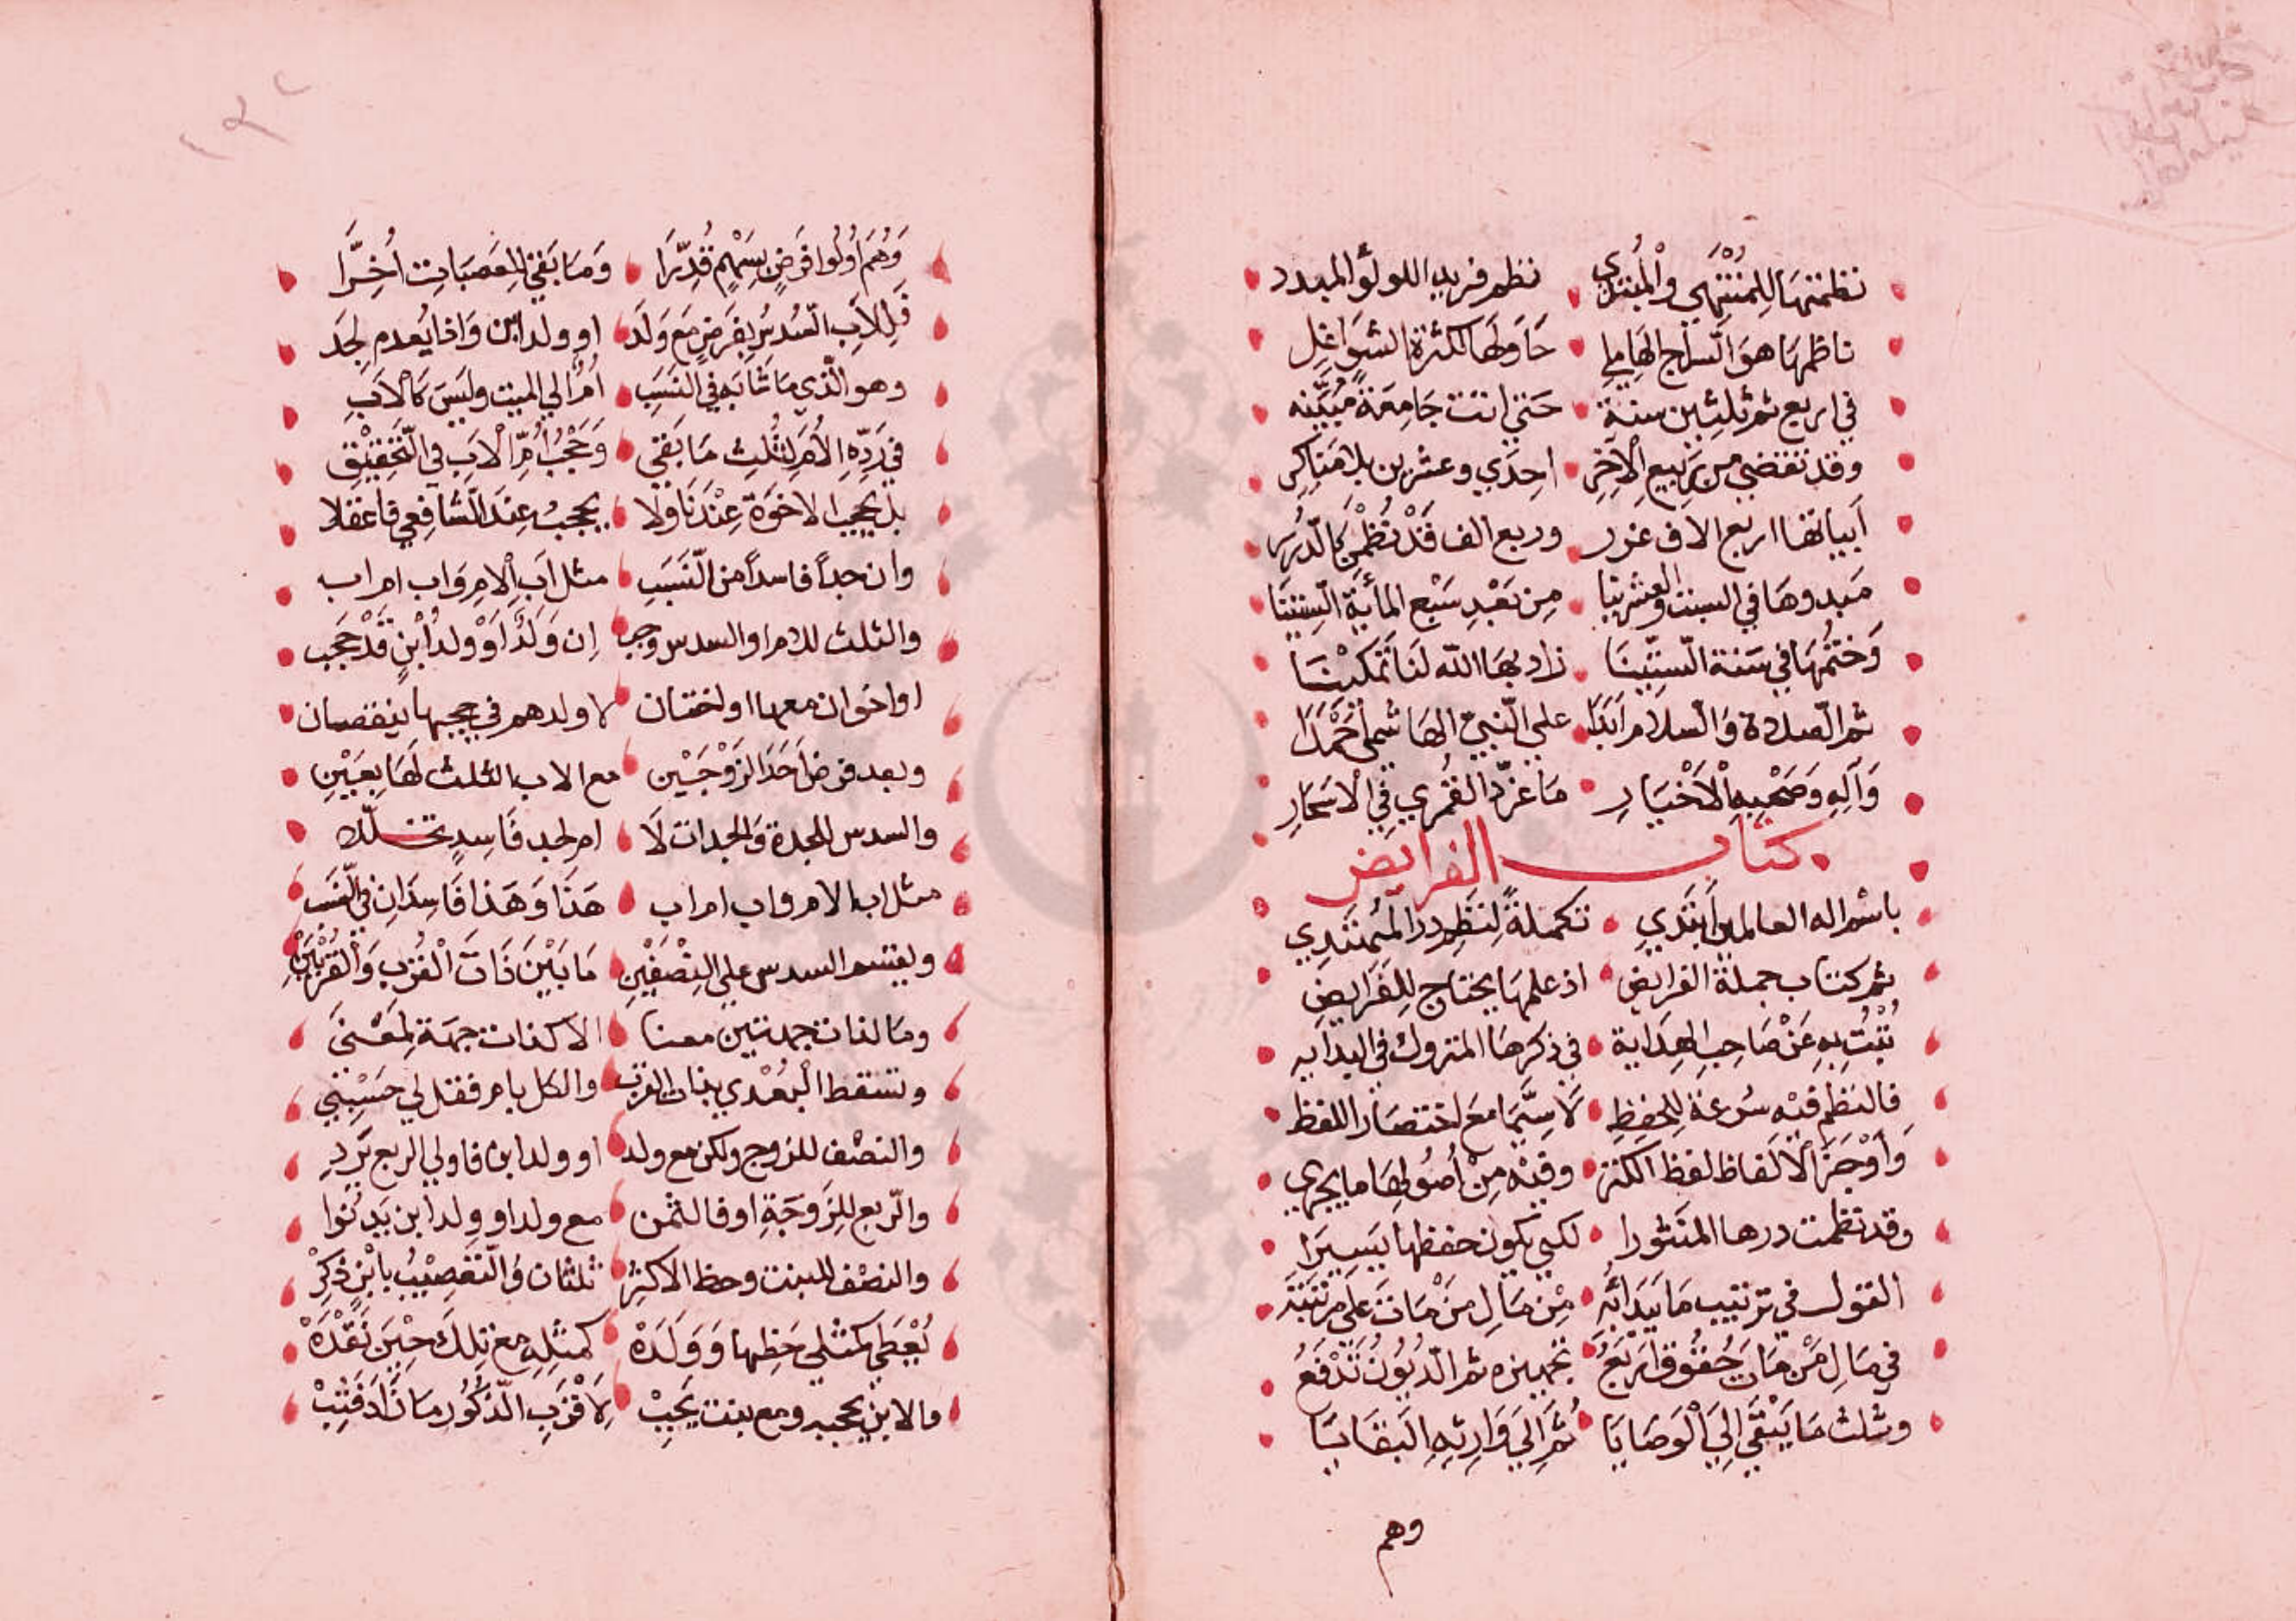 نظمتها لِلمُنْتَهِي والْمُبْتَدِي نظم فريد اللولؤ المبدد
ناظمها هوَ السّراج الهَاملِي حَاوَلهَا لكثرة الشوَاغِل
في اربع ثم ثلثين سنة حَتي انتت جَامِعَةً مُبَيّنه
وقد تقضي من رَبيع الآخِر احِدَي وعشرين بلا مَناكر
اَبياتها اربع الاف غرر وربع الف قَدْ نُظْمن كالدّرر
مَبدوهَا في الست والعشرينا مِن بَعْدِ سَبْع المأية السِّنينَا
وَختمُهَا في سَنة السّتّينَا زاد بهَا الله لنَا تَمكيْنَا
ثم الصّلاة وَالسّلام اَبَدَا علي النّبيّ الهَاشمي اَحْمَدَا
وَآلهِ وَصَحْبِهِ الْاَخْيَارِ مَا غرّد القُمْري في الْاَسْحَارِ
كتاب الفرايض
باسْم اله العالمين اَبتَدي تكملَةً لنَظم در المُهْتَدِي
ثم كتاب جملة الفرايض اذ علمهَا يحتاج لِلفَرَايضِ
نُبْتُ بهِ عَنْ صَاحِب الهِدَاية في ذكرهَا المتروك في البدَايه
فالنظم فيْه سُرعَة لِلحفظِ لَا سِيَّمَا مَعَ اختصَار اللفظ
وَاَوْجَزَ الْاَلفَاظ لفظ الكنز وفيْه مِنْ اُصُولهَا ما يجري
وقد نظمت درها المنَثورا لكَي يكون حفظها يَسِيرَا
القول في ترتيب مَا يبدَأ به مِنْ مَال مَنْ مَاتَ عَلَى مرتَبَتِه
في مَالِ مَنْ مَاتَ حُقُوق اَرْبَعُ تجهيزه ثم الدّيُوْنُ تُدْفَعُ
وثلث مَا يَبْقَي اِلَي الْوَصَايَا ثُمَّ اِلَي وَارثِهِ البَقَايَا
وهم
وَهُمَ اُولُوا فَرضٍ بِسَهْمٍ قُدِّرَا وَمَا بَقي لِلعَصَبَات اُخِّرَا
فَلِلْاَبِ السّدسُ بِفَرضٍ مَع وَلَد او ولد ابن وَاذا يُعدم لجَد
وهو الّذي مَا شَابَه في النَسَب اُمّا الي الميت وليَس كَالْاَبِ
في رَدّه الاُمّ لِثُلث مَا بَقي وَحَجْبُ اُمّ الْاَب في التّحْقيْقِ
بل يحجب الاخوَة عِنْدَنَا وَلَا يحجبُ عِندَ الشّافِعِي فاعقلا
وان جداً فاسداً من النّسَبِ مثل اَبِ الام وَاب ام اب
والثلث للام او السدس وجب اِن وَلَدٌ اَوْ ولد اُبْنٍ قَدْ حَجَب
او اخوان معها او اختان لا ولدهم في حجبها ينقصان
وبعد فرض اَحَد الزَوْجَيْن مع الاب الثلث لَهَا بعَيْنِ
والسدس للجدة وَالجدات لَا ام لجد فَاسِدٍ تخللا
مثل اب الام واب ام اب هَذَا وَهَذا فَاسِدَان في النّسَب
ويقسم السدس علي النِصْفَيْنِ مَا بَيْنَ ذَاتَ الْقُرْب وَالقُرْبَيْنِ
ومَا لذات جهتين معنا الا كذات جهَة لِمَعْنَى
وتسقط الْبُعْدي بذات القرب والكل بام فقل لي حَسْبي
والنصْف للزوج ولكن مع ولد او ولد ابن فاولي الربع يَرد
والرّبع للِزَوجَةِ او فالثمن مع ولد او وِلد ابن يَدنُوا
والنصْف للبنت وحظ الاكثر ثلثان وَالتّعَصِيْبُ باْبْن ذكَرْ
يُعْطَي كَمثلي حَظِها وَوَلَدَهْ كمثلِهِ مع تِلكَ حِيْنَ تَفقُدَهْ
مالابن يحجبه ومع بنت يَجِبْ لِاَقْرَبِ الذّكُور مَا زَادَ فَثِبْ